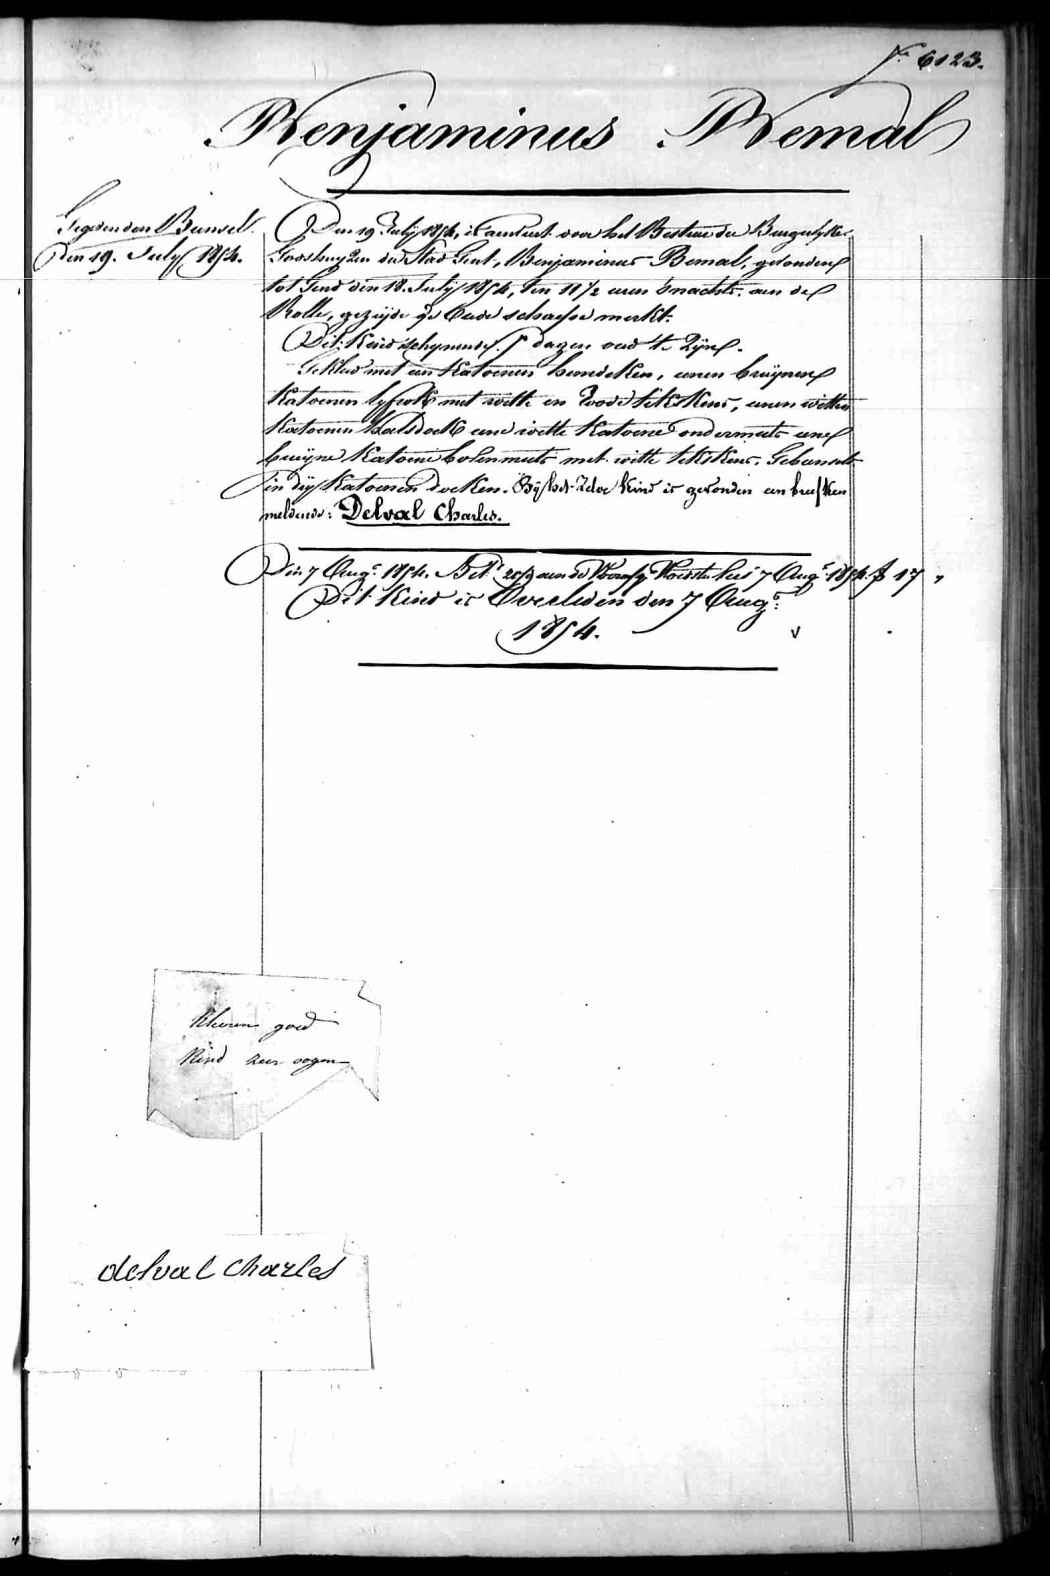 Nr 6123.
Benjaminus Bemal
Gegeven den Bunsel.
Den 19. July 1854.
Den 19 July 1854, is aenveert door het Bestuer der Burgerlyke
Godshuyzen der Stad Gent, Benjaminus Bemal, gevonden
tot Gend den 18. July 1854, ten 11 1/2 uren snachts, aen de
Rolle, gezeijde Oude schaepe merkt.
Dit Kind schynende 5 dagen oud te Zyn.
Gekleed met een Katoenen hemdeken, eenen bruynen
Katoenen lyfrok met witte en Roode tekskens, eenen witten
Katoenen Halsdoek eene witte Katoene ondermuts eene
bruyne Katoene bovenmuts met witte tekskens, Gebunselt
in dry Katoenen doeken. By het Zelve Kind is gevonden een briefken
meldende: Delval Charles.
Den 7 Augt 1854. Bet. aen de Voorsz. Voedster tot 7 Augt 1854. f 17 "
Dit Kind is Overleden den 7 Augt
1854.
Kleeren goed
Kind zeer oogen
delval Charles